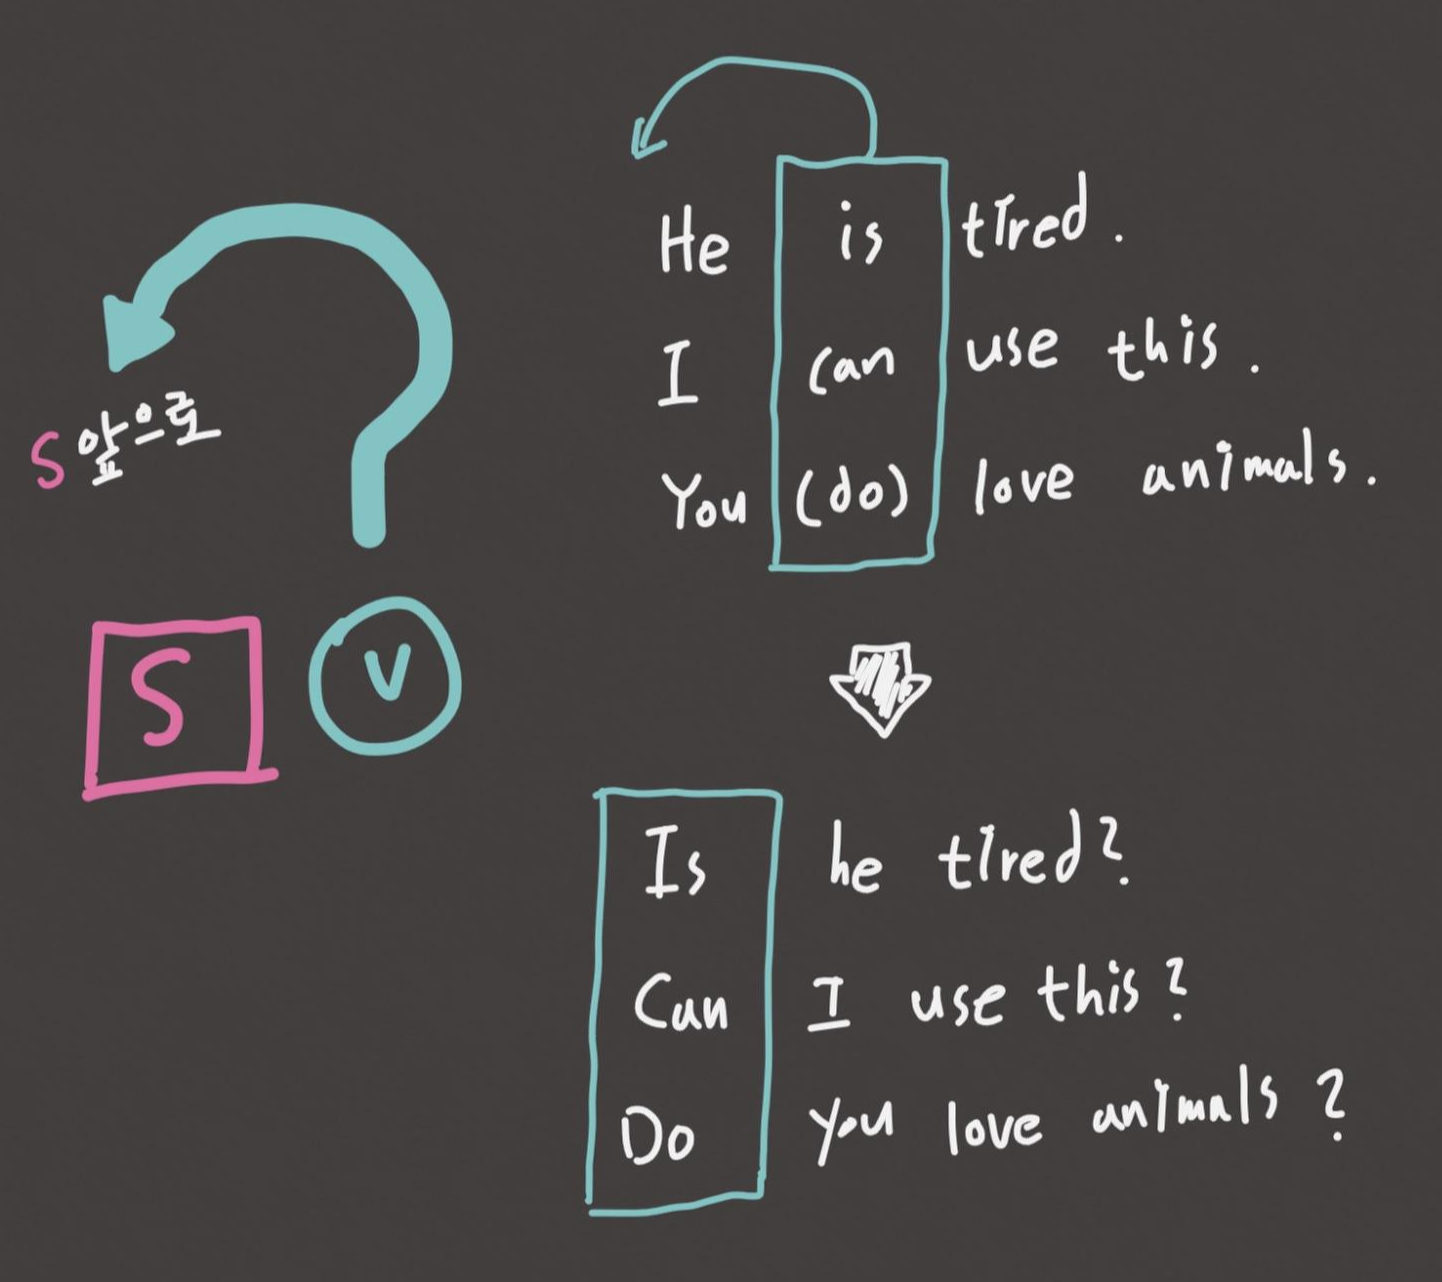 He is tired.
I can use this.
You (do) love animals.
S앞으로
S V
Is he tired?
Can I use this?
Do you love animals?